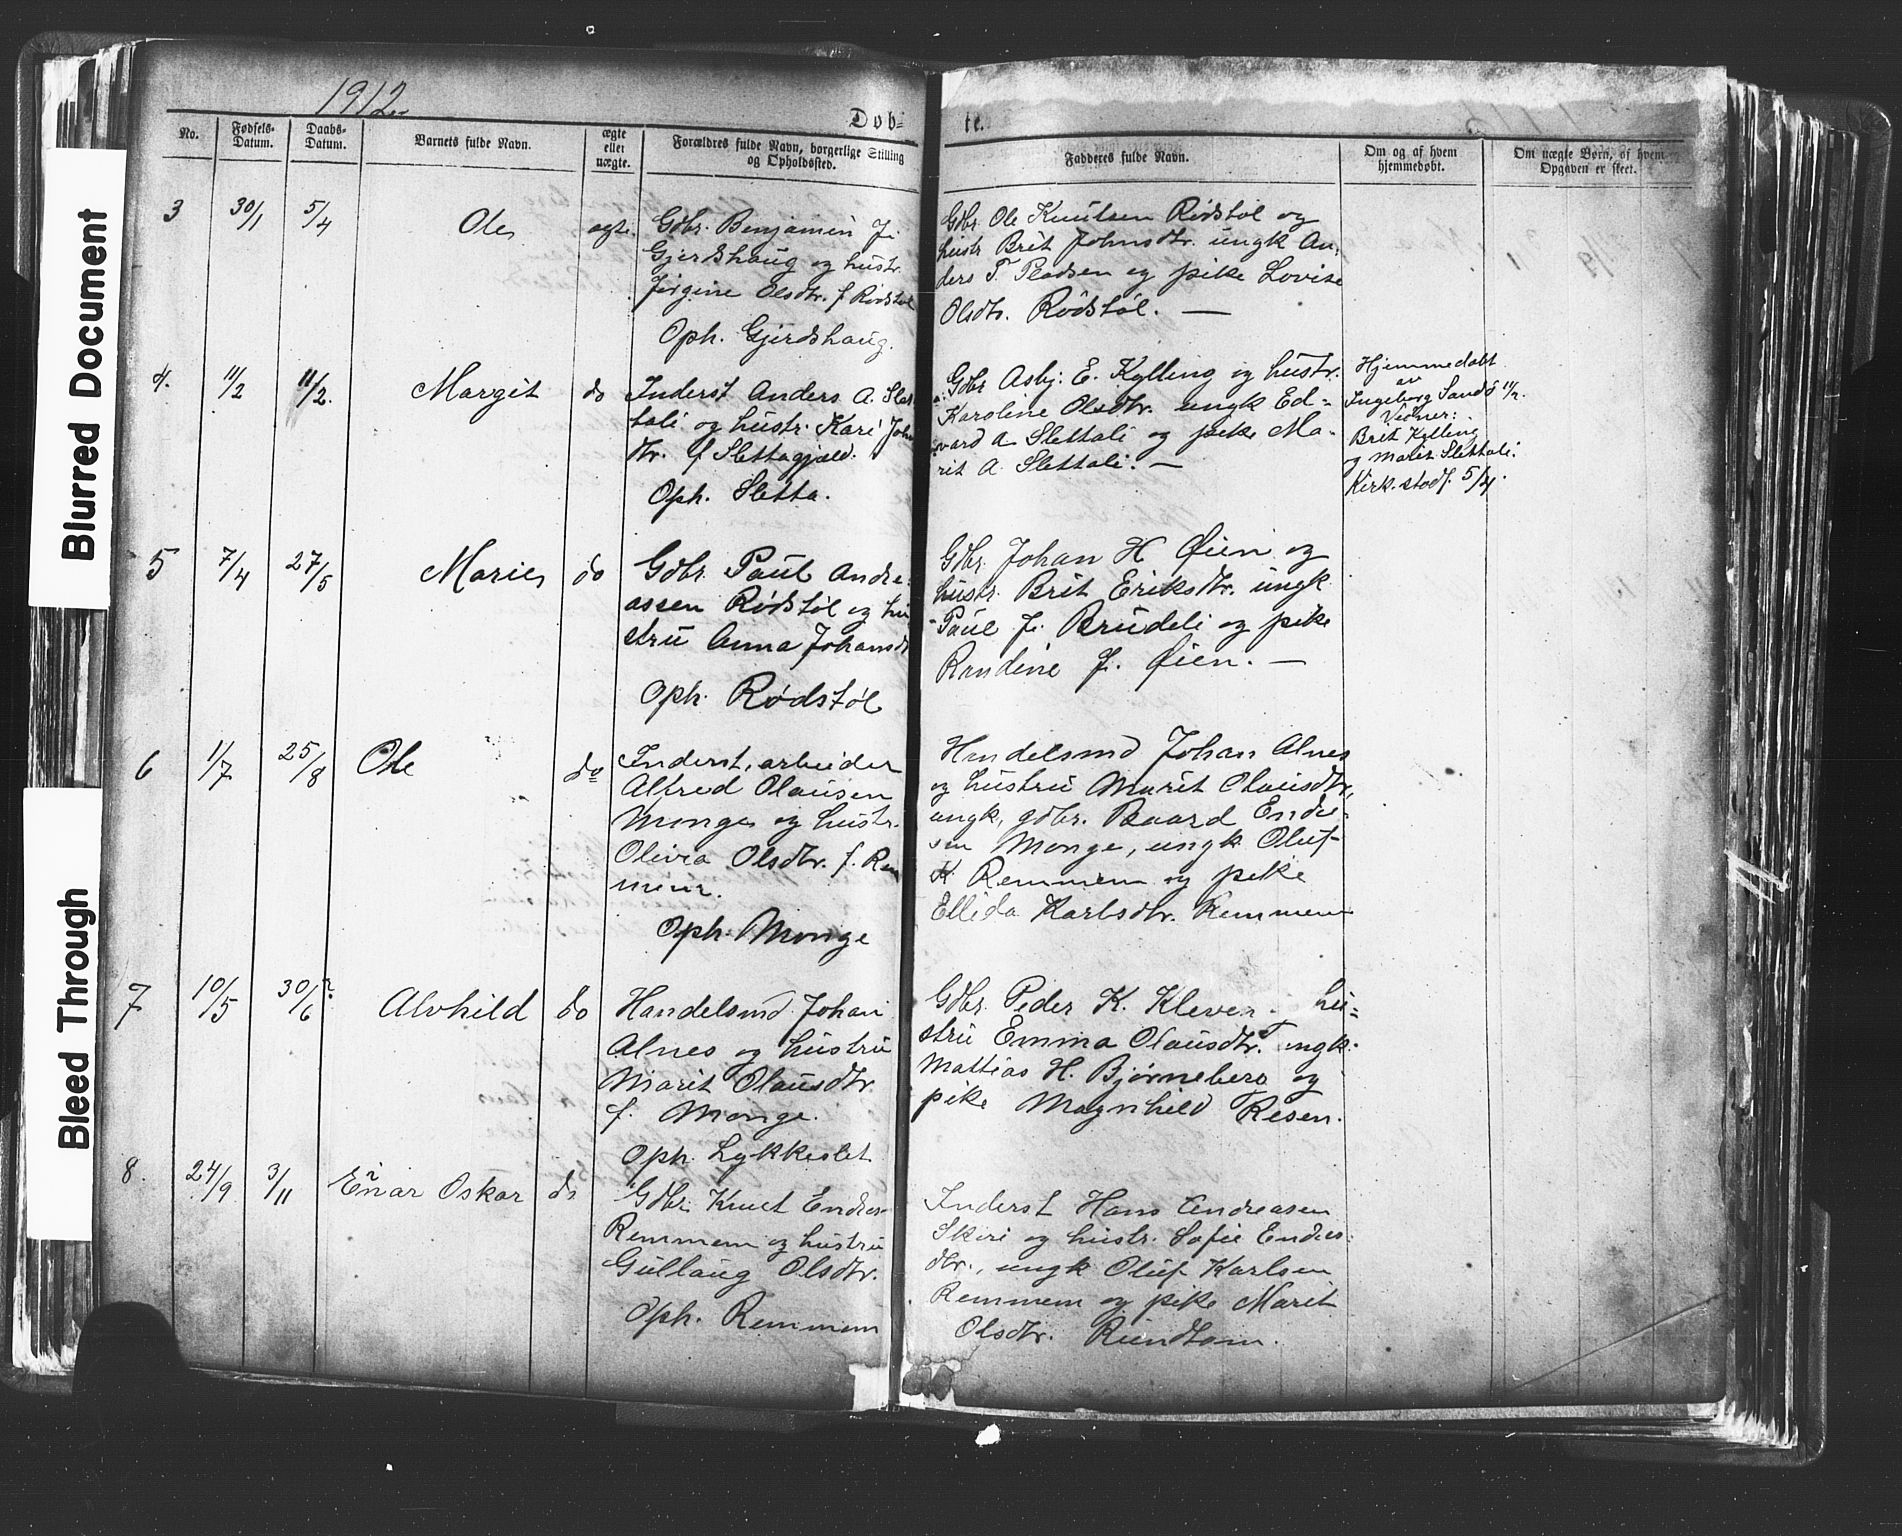 Blurred Document
Bleed Through
1912
Døbte.
No.
Fødsels-Datum.
Daabs-Datum.
Barnets fulde Navn.
ægte eller uægte.
Forældres fulde Navn, borgerlige Stilling og Opholdssted.
Fadderes fulde Navn.
Om og af hvem hjemmedøbt.
Om uægte Børn, af hvem Opgaven er skeet.
3 30/1 5/4 Ole ægte.
Gdbr. Benjamin J.
Gjerdshaug og hustr.
Jørgine Olsdtr. f. Rødstøl
Oph. Gjerdshaug.
Gdbr. Ole Knutsen Rødstøl og
hustr. Brit Johnsdtr. ungk An-
ders T. og pike Lovise
Olsdtr. Rødstøl. —
4. 11/2 11/2. Margit do
Inderst Anders A. Slet
tali og hustr. Kari Johns
dtr. f Slettagjæld.
Oph. Sletta.
Gdbr. Asbj. E. Kylling og hustr.
Karoline Olsdtr. ungk Ed=
vard A Slettali og pike Ma-
rit A. Slettali. —
Hjemmedøbt
av
Ingeborg Sandö 11/2.
Vidner:
Brit Kylling
og Marit Slettali.
Kirk. stadf. 5/4.
5 7/4 27/5 Marie do
Gdbr. Paul Andre-
assen Rødstøl og hu
stru Anna Johansdt
Oph. Rødstøl
Gdbr. Johan H Øien og
hustr. Brit Eriksdtr. ungk
Paul J. Brudeli og pike
Randine J. Øien. —
6 1/7 25/8 Ole do
Inderst, arbeider
Alfred Olausen
Monge og hustr.
Olivia Olsdtr. f. Rem
mem.
Oph. Monge
Handelsmd Johan Alnes
og hustru Marit Olausdtr,
ungk, gdbr. Baard Endre-
sen Monge, ungk Oluf
K Remmem og pike
Ellida Karlsdtr. Remmem
7 10/5 30/6? Alvhild do
Handelsmd. Johan
Alnes og hustru
Marit Olausdtr
f. Monge.
Oph. Lykkeslet
Gdbr. Peder K. Kleven hu=
stru Emma Olausdtr. ungk.
Mattias H. Bjørneberg og
pike Magnhild Resen.
8. 24/9 3/11 Einar Oskar do
Gdbr. Knut Endres-
Remmem og hustru
Gullaug Olsdtr.
Oph. Remmem
Inderst Hans Andreasen
Skiri og hustr. Sofie Endres-
dtr., ungk Oluf Karlsen
Remmem og pike Marit
Olsdtr.